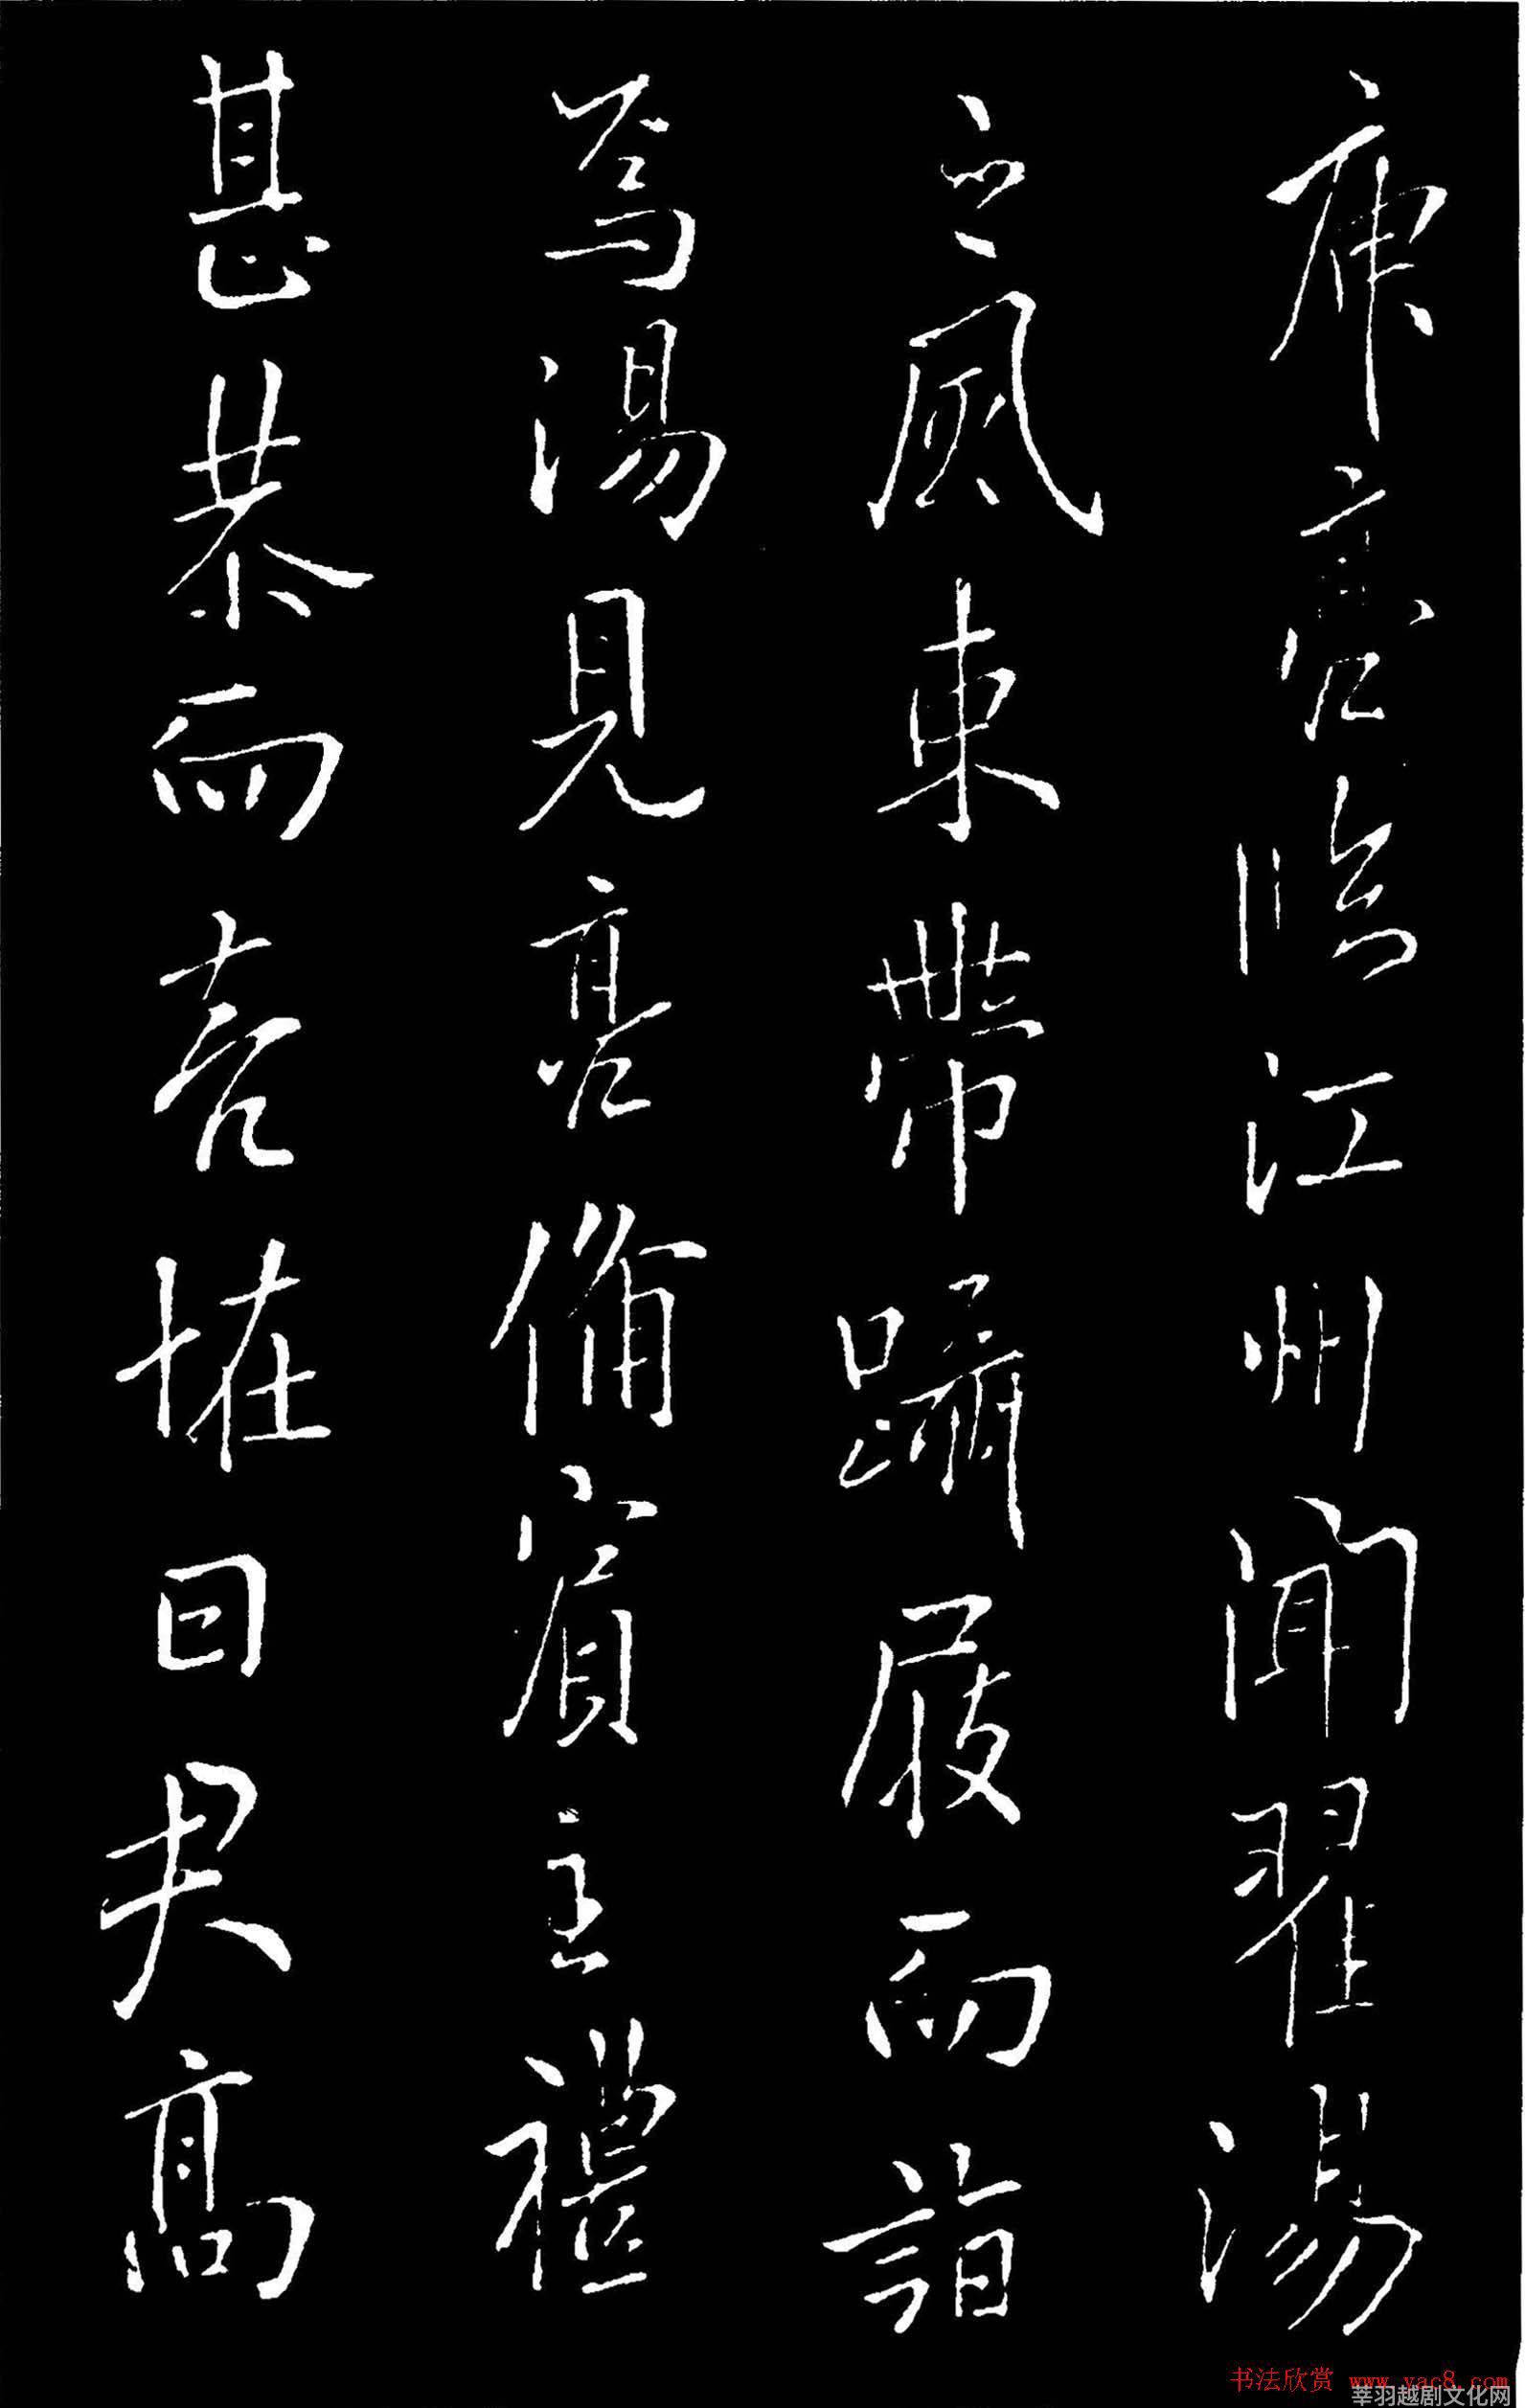 庾亮臨江州聞翟湯
之風束帶躡屐而詣
焉湯見亮備賓主禮
甚恭而亮恠曰君高
书法欣赏 www.yac8.com
莘羽越剧文化网